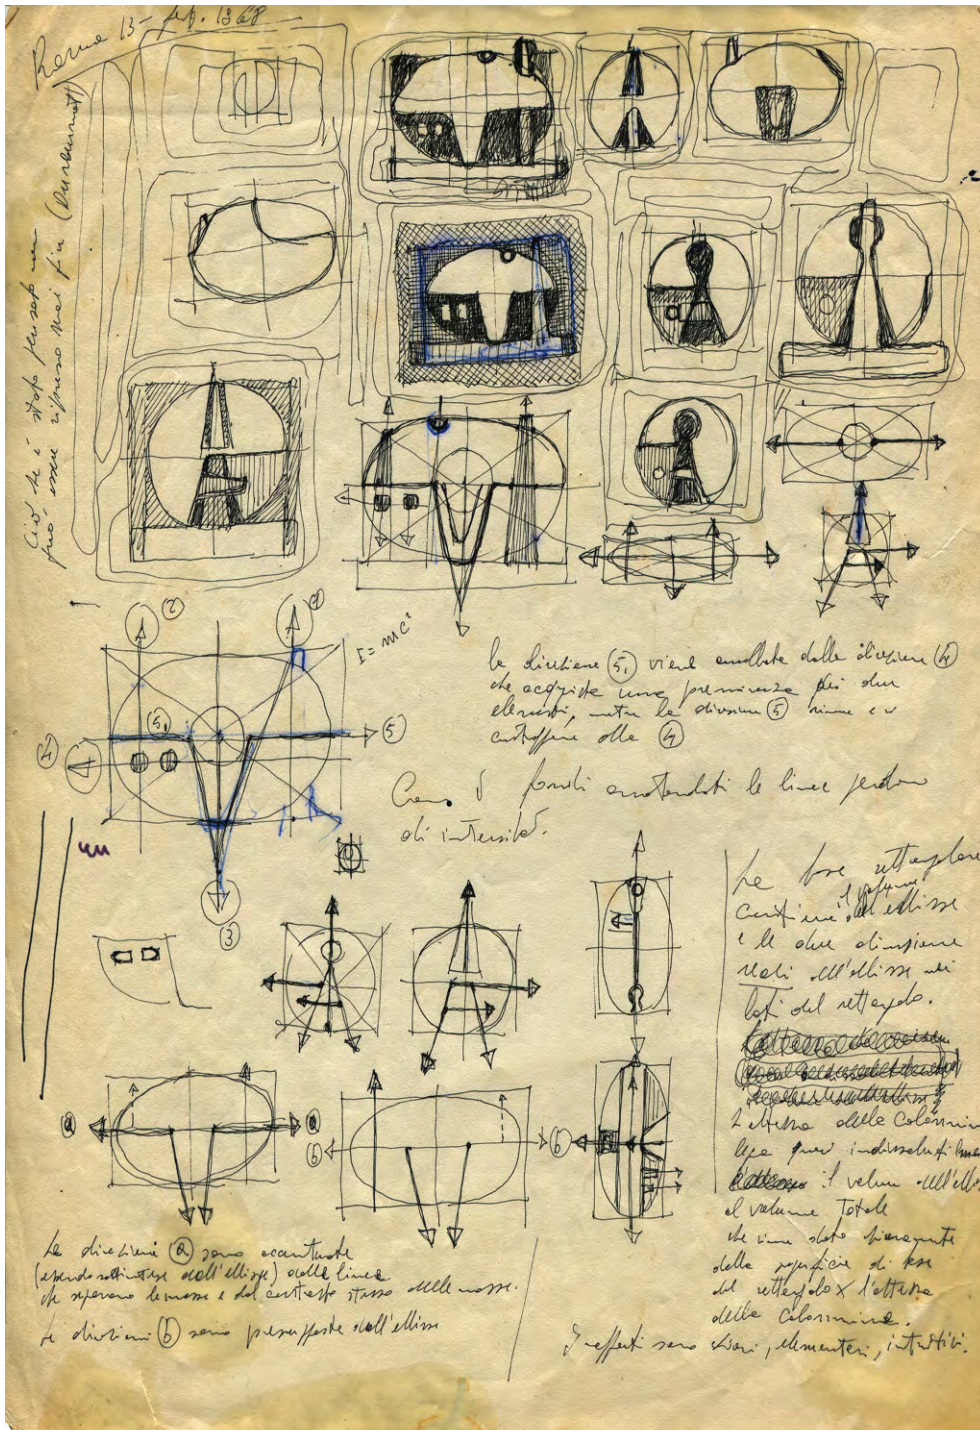 Roma 13 - feb. 1968
Ciò che è stato pensato non
può essere ripreso mai più (Dürrenmatt)
2
2
I = mc²
5₁
5
4
3
un
la direzione (5₁) viene annullata dalla direzione (4)
che acquista una preminenza sui due
elementi, mentre la direzione (5) rimane e
contrappone alla (4)
Con i fondi le linee perdono
di intensità.
La base rettangolare
contiene il volume dell'ellisse
e le due dimensione
reali dell'ellisse nei
lati del rettangolo.
L'altezza delle Colonnine
lega quasi indissolubilmente
il volume dell'ellisse
al volume Totale
che viene dato
dalla superficie di base
del rettangolo x l'altezza
della Colonnina.
a
a
b
b
Le direzioni (a) sono accentuate
(essendo sottintese dall'ellisse) dalle linee
che separano le masse e dal contrasto stesso delle masse.
Le direzioni (b) sono dall'ellisse
I effetti sono, elementari, intuitivi.